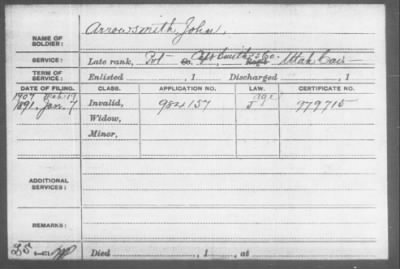 NAME OF SOLDIER: Arrowsmith, John,
SERVICE: Late rank, Pvt Co. Capt Smith's Co. Reg't Utah Cav
TERM OF SERVICE: Enlisted , 1 Discharged , 1
DATE OF FILING. CLASS. APPLICATION NO. LAW. CERTIFICATE NO.
1907
1891. Jan. 7 Invalid, 984157 J 979715
Widow,
Minor,
ADDITIONAL SERVICES:
REMARKS:
Died , 1 , at